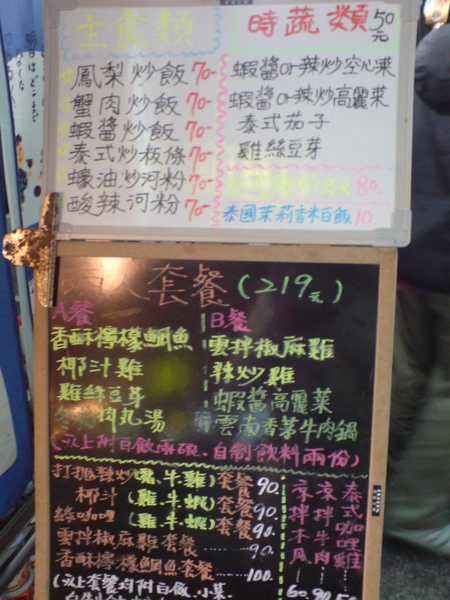 主食類
鳳梨炒飯 70-
蟹肉炒飯 70-
蝦醬炒飯 70-
泰式炒板條 70-
蠔油炒河粉 70-
酸辣河粉 70-
時蔬類 50元
蝦醬or辣炒空心菜
蝦醬or辣炒高麗菜
泰式茄子
雞絲豆芽
80.
泰國茉莉香米白飯 10.
人套餐(219元)
A餐
香酥檸檬鯛魚
椰汁雞
雞絲豆芽
肉丸湯
B餐
雲拌椒麻雞
辣炒雞
蝦醬高麗菜
雲南香茅牛肉鍋
(以上附白飯兩碗、自制飲料兩份)
打拋辣炒(豬、牛、雞)套餐 90.
椰汁(雞、牛、蝦)套餐 90.
綠咖哩(雞、牛、蝦)套餐 90.
雲拌椒麻雞套餐......90.
香酥檸檬鯛魚套餐......100.
(以上套餐均附白飯、小菜
泰式咖哩雞 50
涼拌牛肉 90
涼拌木 60